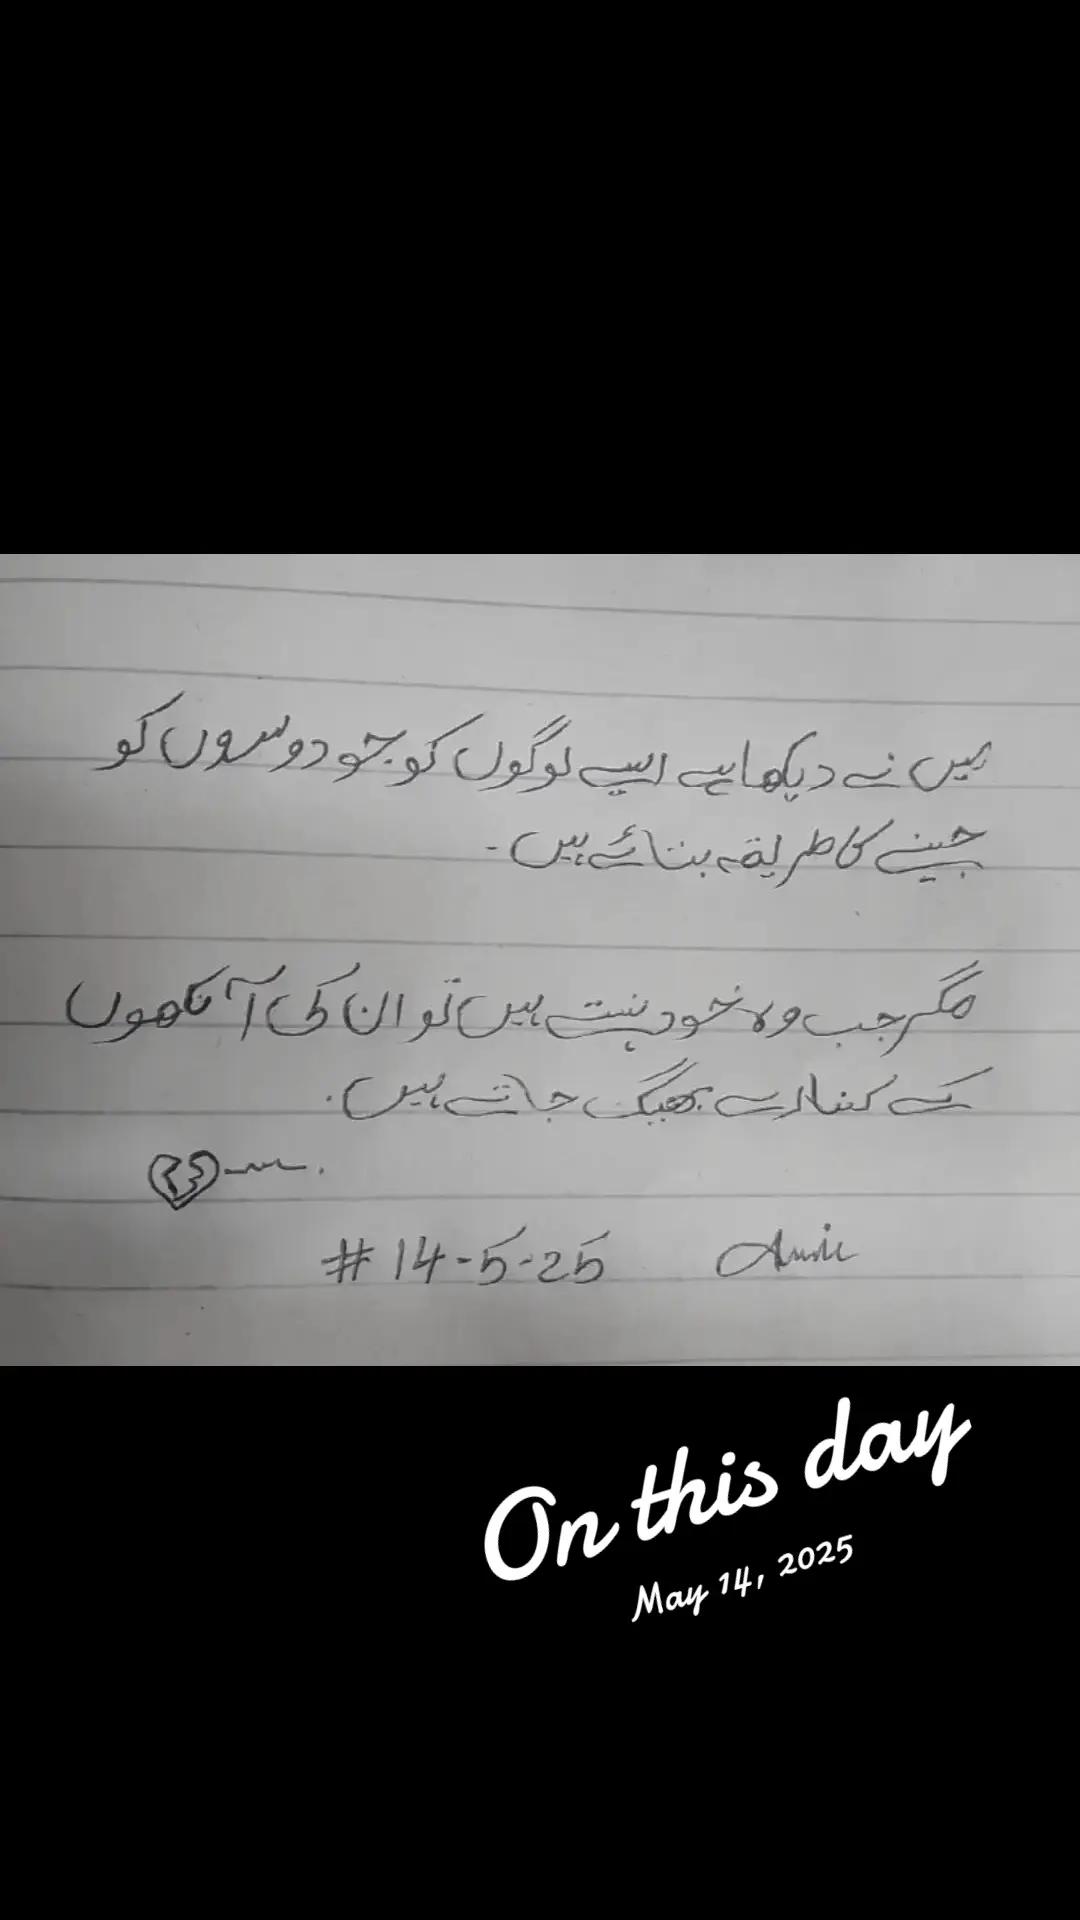 میں نے دیکھا ہے ایسے لوگوں کو جو دوسروں کو
جینے کا طریقہ بتائے ہیں ۔
مگر جب وہ خود ہنستے ہیں تو ان کی آنکھوں
کے کنارے بھیگ جاتے ہیں ۔
# 14-5-25
On this day
May 14, 2025